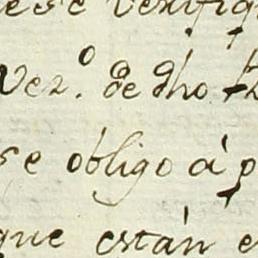 ese verifiq
Vez.º de dho
se obligo á p
que están e